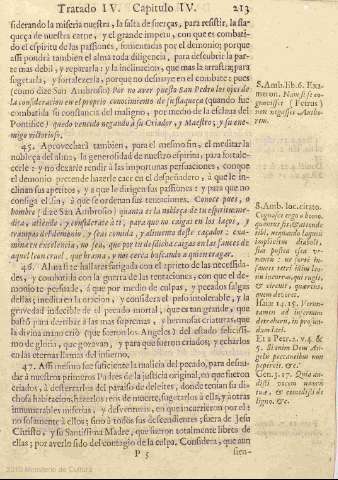 Tratado IV. Capitulo IV. 213
siderando la miseria nuestra, la falta de fuerças, para resistir, la fla-
queça de nuestra carne, y el grande impetu, con que es combati-
do el espiritu de las passiones, fomentadas por el demonio; porque
assi pondrà tambien el alma toda diligencia, para descubrir la par-
te mas debil, y repararla: y la inclinacion, que mas la arrastra; para
sugetarla, y fortalecerla, porque no desmaye en el combate: pues
(como dize San Ambrosio) Por no aver puesto San Pedro los ojos de
la consideracion en el proprio conocimiento de su flaqueça (quando fue
combatida su constancia del maligno, por medio de la esclava del
Pontifice) quedò vencido negando à su Criador, y Maestro, y su ene-
migo victorioso.
45. Aprovecharà tambien, para el mesmo fin, el meditar la
nobleça del alma, la generosidad de nuestro espiritu, para fortale-
cerle; y no dexarle rendir à las importunas persuasiones, conque
el demonio pretende hazerle caer en el despeñadero, à que le in-
clinan sus apetitos, y a que le dirigen sus passiones: y para que no
consiga el fin, à que se ordenan sus tentaciones. Conoce pues, o
hombre (dize San Ambrosio) quanta es la nobleça de tu espiritu: me-
dita, atiende, y considerate à ti; para que no caigas en los laços, y
trampas del demonio, y sea comida, y alimento deste caçador: exa-
mina tu excelencia, no sea, que por tu desdicha caigas en las fauces de
aquel Leon cruel, que brama, y nos cerca buscando a quien tragar.
46. Al que se hallare sitiado con el aprieto de las necessida-
des, y combatido con la guerra de las tentaciones; con que el de-
monio le persuade, à que por medio de culpas, y pecados salga
dellas; inedita en la oracion, y considere el peso intolerable, y la
gravedad indecible de el pecado mortal, que es tan grande, que
bastò para derribar à las mas supremas, y hermosas criaturas, que
la divina mano criò (que fueron los Angeles) del estado felicissi-
mo de gloria, que goçavan, y para que fueron criados, y echarlos
en las eternas llamas del infierno.
47. Assi mesmo fue suficiente la malicia del pecado, para desnu-
dar à nuestros primeros Padres de la justicia original, en que fueron
criados, à desterrarlos del paraiso de deleites, donde tenian su di-
chosa habitacion, hazerlos reos de muerte, sugetarlos à ella, y à otras
innumerables miserias, y desventuras, en que incurrieron por el;
no solamente à ellos; sino à todos sus descendientes; fuera de Jesu
Christo, y su Santissima Madre, que fueron totalmente libres de
ellas; por averlo sido del contagio de la culpa. Considera, que aun
P 5 sien-
S. Amb. lib. 6. Exa-
meron. Nam si se co-
gnovisset (Petrus)
non negasset Autho-
rem.
S. Amb. loc. citato.
Cognosce ergo o homo.
Haec 14. 15.
Et 2 Petr. 2. v. 4. &
5.
Gen. 3. 17.